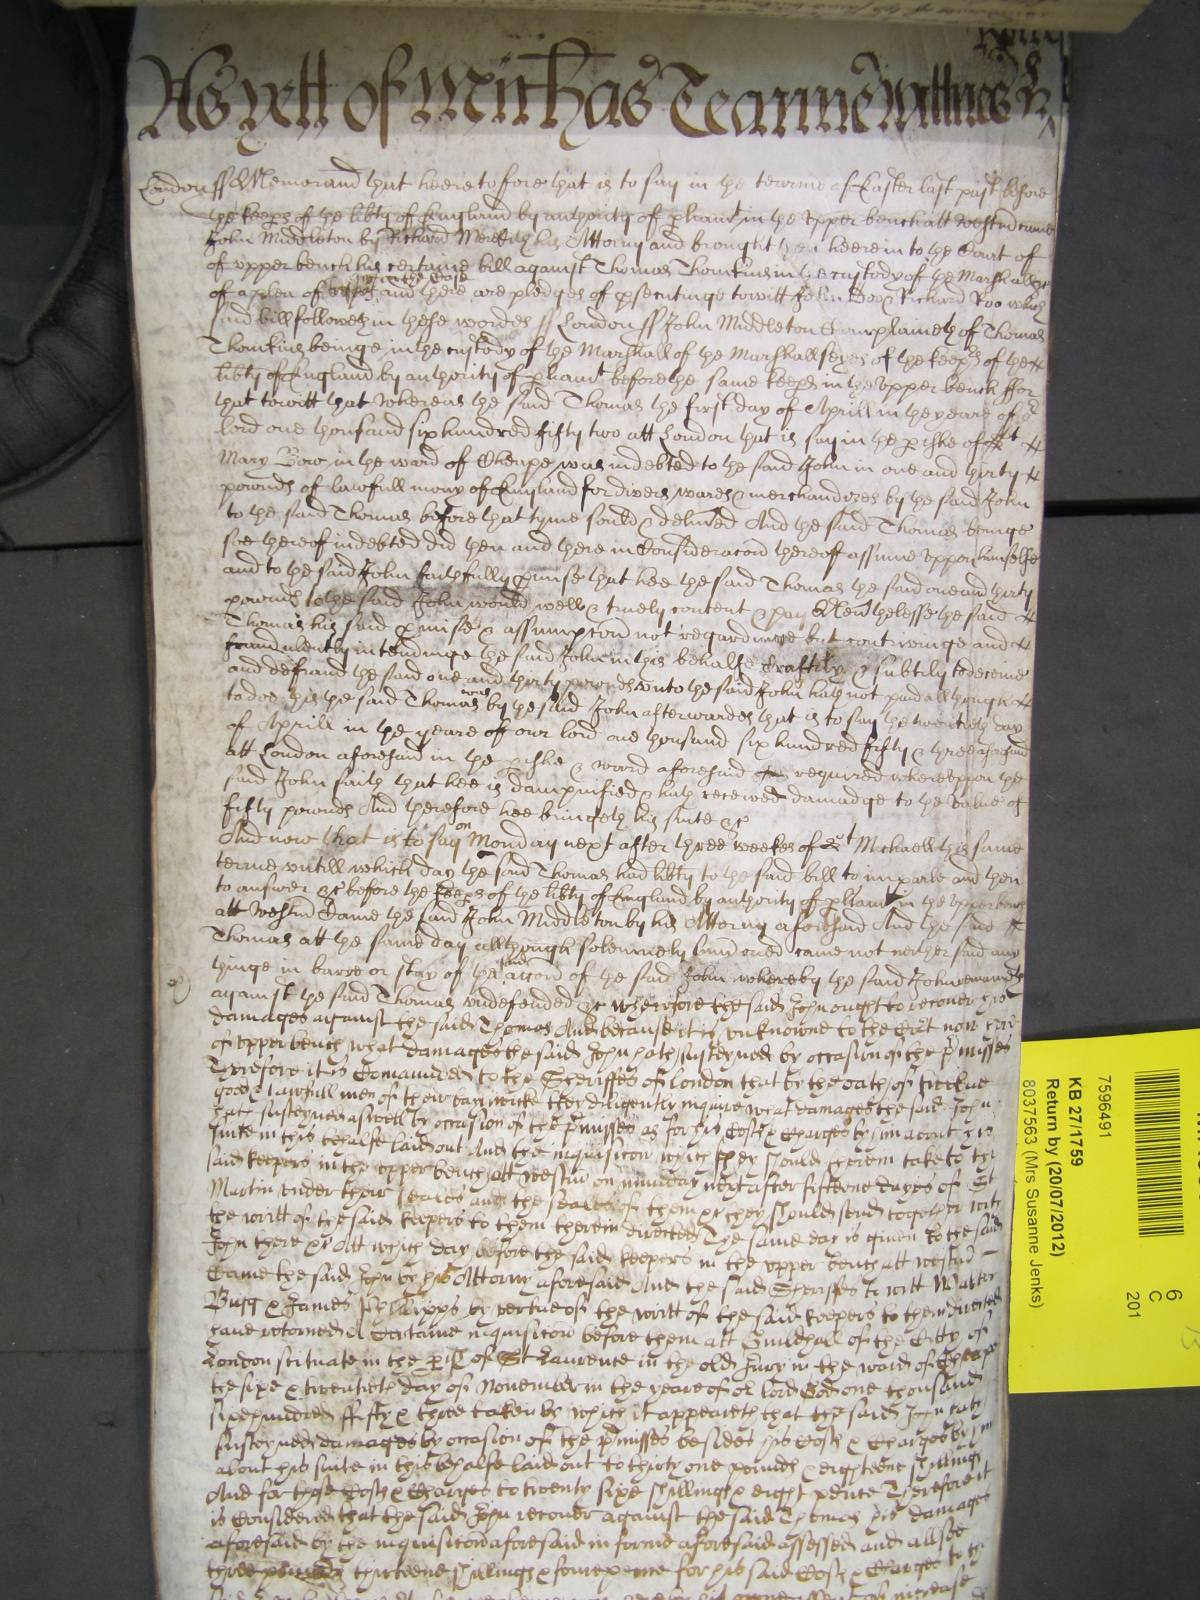 As yett of Mich'as Tearme Wittnes
London ss Memorand that heeretofore that is to say in the tearme of Easter last past before
the keeps of the lib'ty of England by authority of p'liam't in the upper bench att Westm' came
John Middleton by Richard Meredith his Attorny and brought then heere into the Court of
of upper bench his certaine bill against Thomas Thomkins in the custody of the Marshall &c
of a plea of trespas upon the Case and there are pledges of p'secutinge towitt John Doo & Richard Roo which
said bill followeth in these wordes ss London ss John Middleton Complaineth of Thomas
Thomkins beinge in the custody of the Marshall of the Marshallseyes of the keeps of the
lib'ty of England by authority of p'liam't before the same keeps in the upper bench ffor
that towitt that whereas the said Thomas the first day of Aprill in the yeare of o'r
lord one thousand six hundred fifty two att London that is say in the p'ishe of S't
Mary Bow in the ward of Cheape was indebted to the said John in one and thirty
pownds of lawfull mony of England for divers wares & merchandizes by the said John
to the said Thomas before that tyme sould & deliv'ed And the said Thomas beinge
soe thereof indebted did then and there in Consideracon thereof assume uppon himselfe
and to the said John faithfully p'mise that hee the said Thomas the said one and thirty
pownds to the said John would well & truely content & pay Neverthelesse the said
Thomas his said p'mise & assumpcon not regardinge but contrivinge and
fraudulently intendinge the said John in this behalfe Craftily & subtily to deceive
and defraud the said one and thirty pownds unto the said John hath not paid allthough
to doe this the said Thomas was by the said John afterwardes that is to say the twentieth day
of Aprill in the yeare of our lord one thousand six hundred fifty & three aforesaid
att London aforesaid in the p'ishe & ward aforesaid required whereuppon the
said John saith that hee is dampnified & hath received damadge to the value of
fifty pownds And therefore hee bringeth his suite &c
And now that is to say on Monday next after three weekes of S't Michaell this same
terme untill which day the said Thomas had lib'ty to the said bill to imparle and then
to answer &c before the keeps of the lib'ty of England by authority of p'liam't in the upper bench
att Westm' Came the said John Middleton by his Attorny aforesaid And the said
Thomas att the same day allthough solemnely came not neither said any
thinge in barre or stay of the accon of the said John whereby the said John remaineth
against the said Thomas undefended &c Wherefore the said John ought to recover his
damages against the said Thomas And because it is unknowne to the Court now here
of upper bench what damages the said John hath susteyned by occasion of the p'misses
Therefore it is Comaunded to the Sheriffes of London that by the oath of twelve
good & lawfull men of their bayliwicke they diligently inquire what damages the said John
hath susteyned aswell by occasion of the p'misses as for his Costs & Charges by him about his
suite in this behalfe laid out And the inquisicon which they should therein take to the
said keepers in the upper bench att Westm' on munday next after fifteene dayes of St
Martin under their seales and the seales of them &c they should send together with
the writt of the said keepers to them therein directed The same day is given to the said
John there &c Att which day before the said keepers in the upper bench att Westm'
Came the said John by his Attorny aforesaid And the said Sheriffes to witt Walter
Bigg & James Phillipps by vertue of the writt of the said keepers to them directed
have retorned A Certaine inquisicon before them att Guildhall of the Citty of
London scituate in the p'ish of St Laurence in the old Jury in the ward of Cheape
the sixe & twentieth day of November in the yeare of o'r lord God one thousand
sixe hundred ffifty & three taken by which it appeareth that the said John hath
susteyned damages by occasion of the p'misses besides his Costs & Charges by him
about his suite in this behalfe laid out to thirty one pounds & eighteene shillings
And for those Costs & Charges to twenty sixe shillings & eight pence Therefore it
is Considered that the said John recover against the said Thomas his damages
aforesaid by the inquisicon aforesaid in forme aforesaid assessed and allsoe
three thirteene shillings & foure pence for his said Costs & Charges to the
increase
7596491
KB 27/1759
Return by (20/07/2012)
8037563 (Mrs Susanne Jenks)
6
C
201